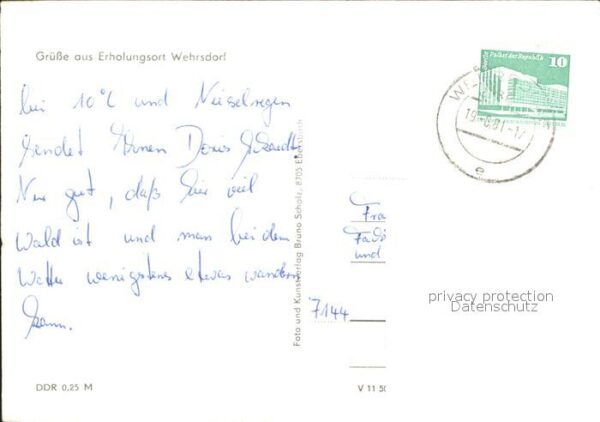 Grüße aus Erholungsort Wehrsdorf
bei 10°C und Nieselregen
sendet Ihnen Doris
Nur gut, daß hier viel
Wald ist und man bei dem
Wetter wenigstens etwas wandern
kann.
DDR 0,25 M
Foto und Kunstverlag Bruno Scholz, 8705 Ebersbach
Palast der Republik
10
Fra
und
7144
V 11 50
privacy protection
Datenschutz